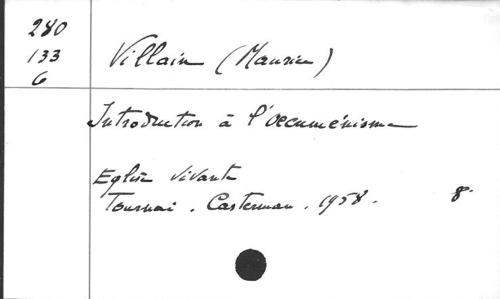 280
133
6
Villain (Maurice)
Introduction à l'œcuménisme
Eglise Vivante
Tournai. Casterman. 1958. 8°